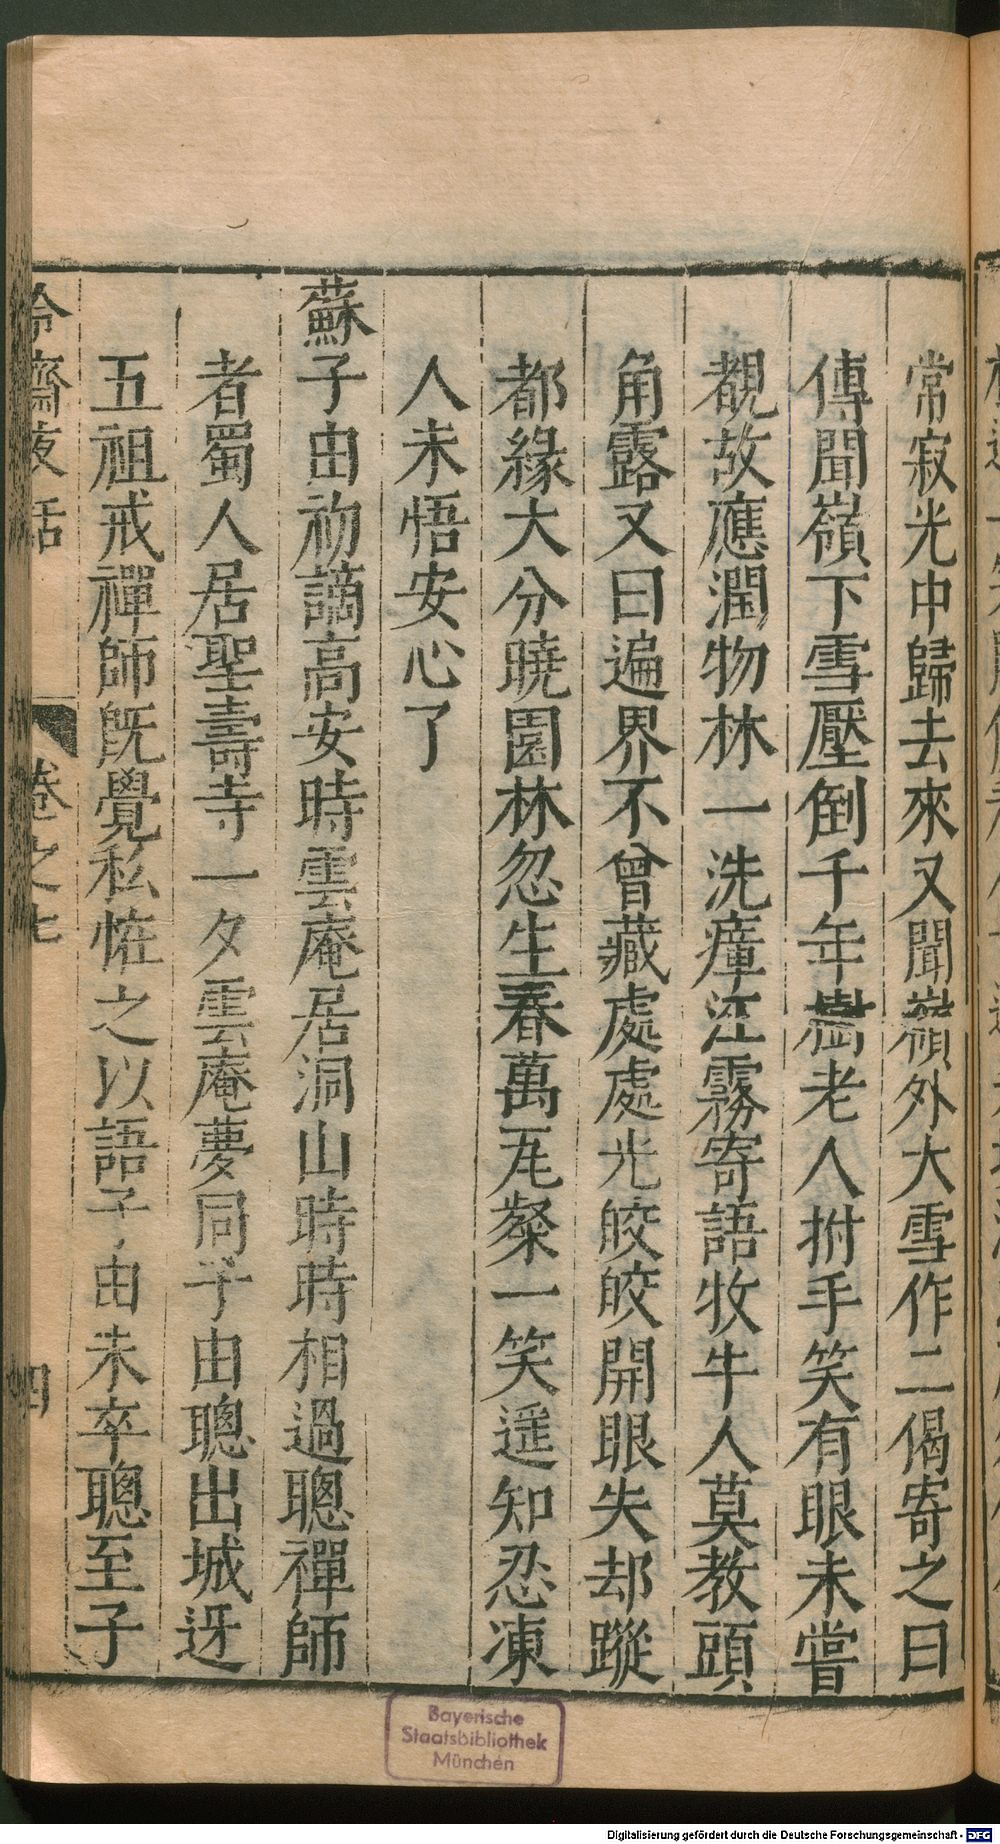 常寂光中歸去來又聞嶺外大雪作二偈寄之曰
傳聞嶺下雪壓倒千年樹老人拊手笑有眼未嘗
覩故應潤物林一洗瘴江霧寄語牧牛人莫教頭
角露又曰遍界不曾藏處處光皎皎開眼失却蹤
都緣大分曉園林忽生春萬瓦粲一笑遥知忍凍
人未悟安心了
蘇子由初謫高安時雲庵居洞山時時相過聰禪師
者蜀人居聖壽寺一夕雲庵夢同子由聰出城迓
五祖戒禪師旣覺私恠之以語子由未卒聰至子
冷齋夜話 卷之七 四
Bayerische
Staatsbibliothek
München
Digitalisierung gefördert durch die Deutsche Forschungsgemeinschaft - DFG